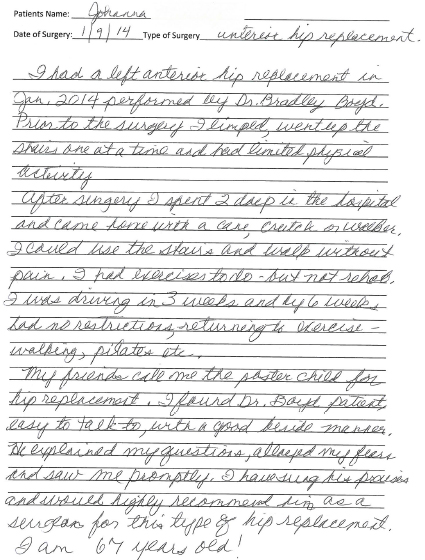 Patients Name: Johanna
Date of Surgery: 1/9/14 Type of Surgery anterior hip replacement.
I had a left anterior hip replacement in
Jan, 2014 performed by Dr. Bradley Boyd.
Prior to the surgery I limped, went up the
stairs one at a time and had limited physical
activity
After surgery I spent 2 days in the hospital
and came home with a cane, crutch or walker.
I could use the stairs and walk without
pain. I had exercises to do - but not rehab.
I was driving in 3 weeks and by 6 weeks
had no restrictions, returning to exercise -
walking, pilates etc.
My friends call me the poster child for
hip replacement. I found Dr. Boyd patient,
easy to talk to, with a good beside manner.
He explained my questions, allayed my fears
and saw me promptly. I have sung his praises
and would highly recommend him as a
surgeon for this type of hip replacement.
I am 67 years old!